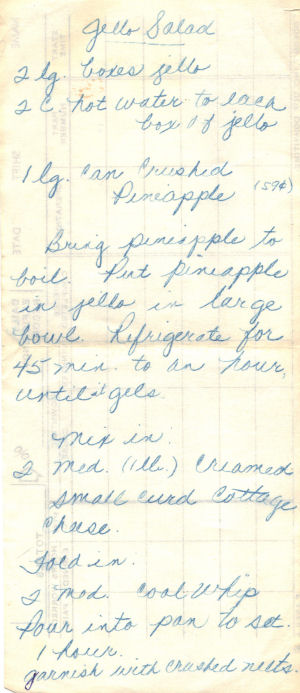 Jello Salad
2 lg. boxes jello
2 C hot water to each
box of jello
1 lg. can Crushed
Pineapple (59¢)
Bring pineapple to
boil. Put pineapple
in jello in large
bowl. Refrigerate for
45 min. to an hour,
until it gels.
Mix in:
2 med. (1 lb.) Creamed
small curd Cottage
Cheese.
Fold in.
2 med. Cool Whip
Pour into pan to set.
1 hour.
garnish with crushed nuts.